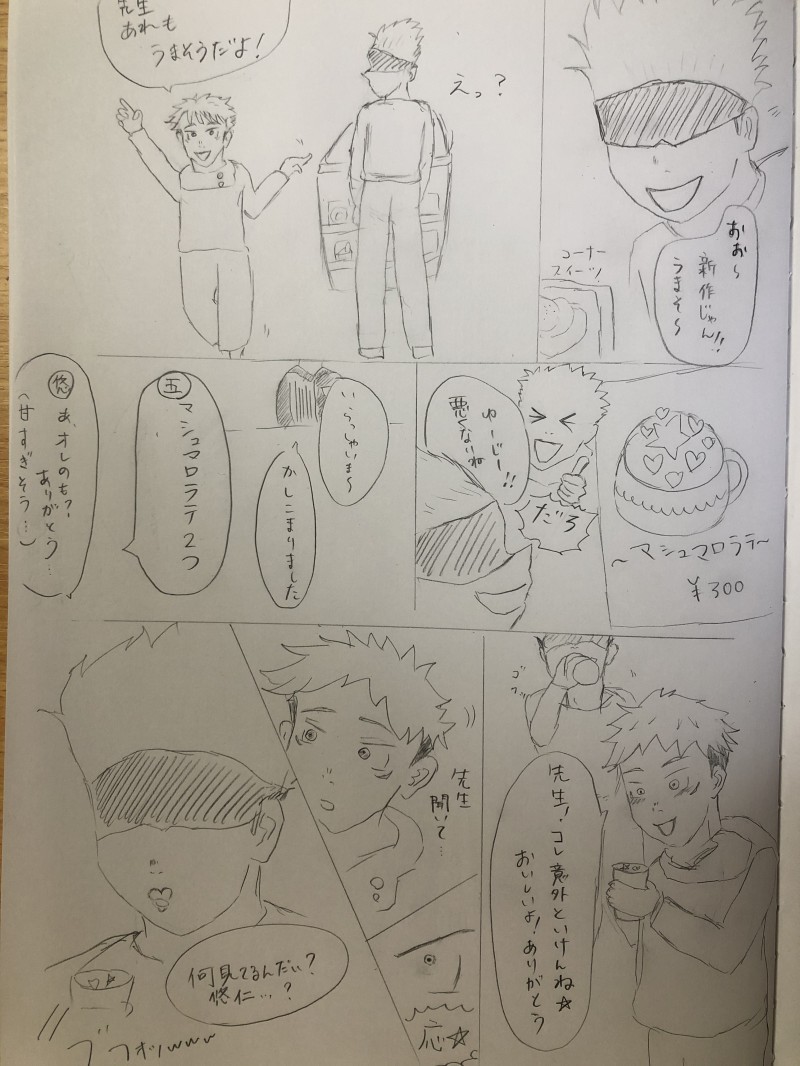 おお〜
新作じゃん!!
うまそ〜
コーナー
スイーツ!
えっ?
先生
あれも
うまそうだよ!
〜マシュマロラテ〜
¥300
ゆーじー!!
悪くないね
だろ
いらっしゃいま〜
かしこまりました
五
マシュマロラテ2つ
悠
あ、オレのも?
ありがとう…
(甘すぎそう…)
ゴ
フッ
先生!コレ意外といけんね☆
おいしいよ!ありがとう
先生
聞いて…
応☆
何見てるんだい?
悠仁…?
ブフォッwww